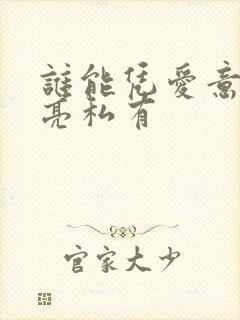 誰能凭愛意
亮私有
官家大少